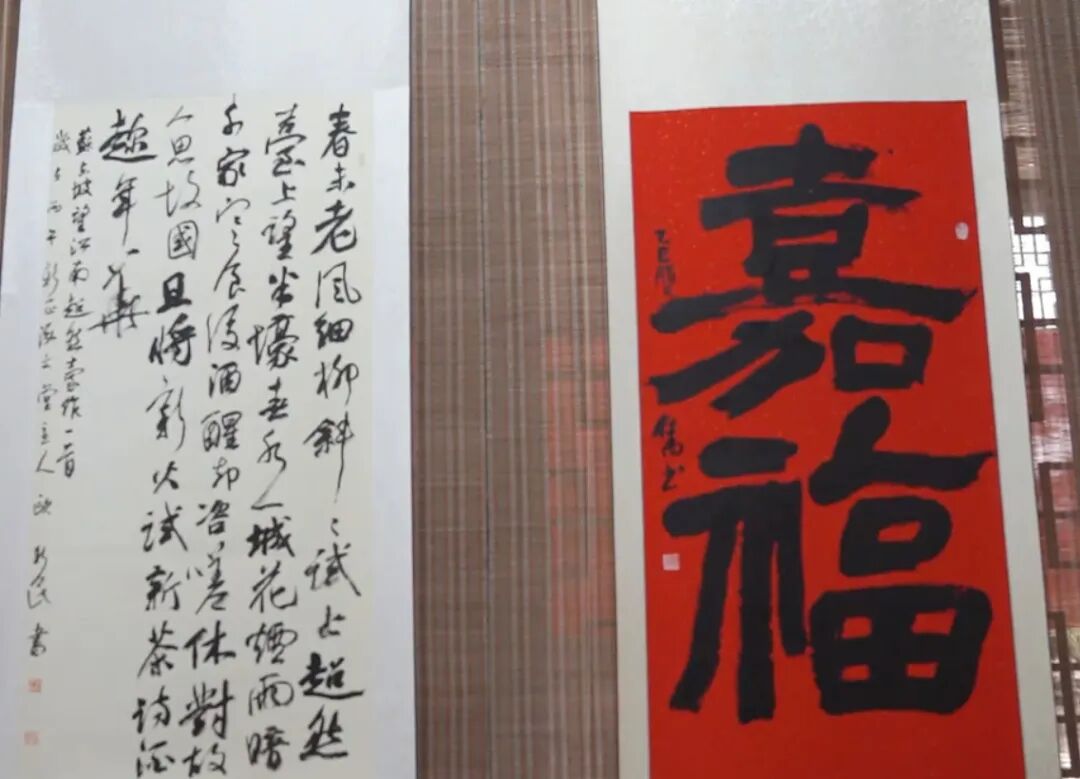 嘉福
乙巳
書
春未老風細柳斜〻試上超然
臺上望半壕春水一城花煙雨暗
千家寒食後酒醒却咨嗟休對故
人思故國且將新火試新茶詩酒
趁年華
蘇東坡望江南超然臺作一首
歲在丙午新正堂主人 書